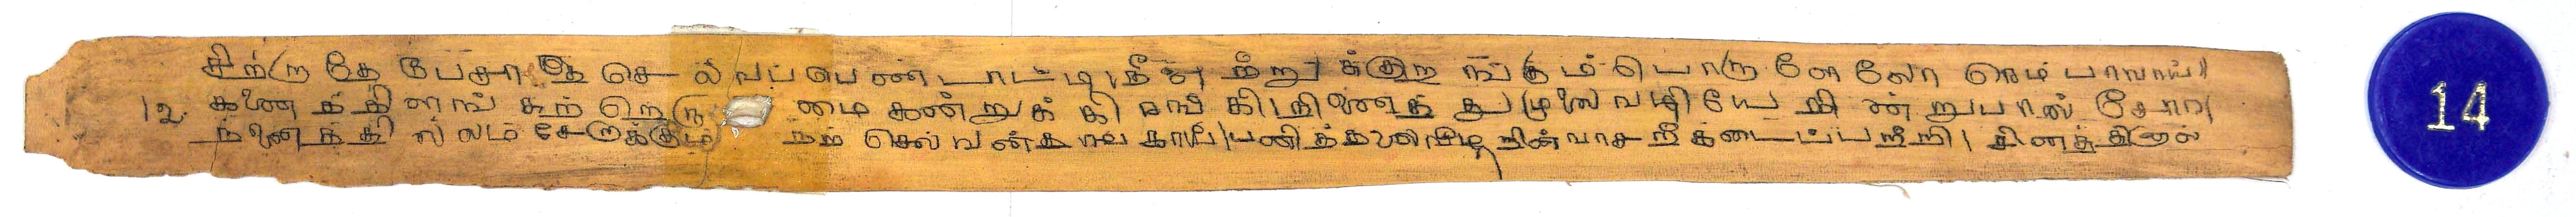 சிற்றாதே பேசாதே செல்வப்பெண்டாட்டி நீ எற்றுக்குறங்கும் பொருளேலோ ரெம்பாவாய்
12. கனைத்திளங் கற்றெரு மைகன்றுக் கிரங்கி நினைத்து முலைவழியே நின்றுபால் சோர
நனைத்தில்லம் சேறாக்கும் நற்செல்வன்தங்காய் பனித்தலைவீழ நின்வாசற் கடைப்பற்றி சினத்தினால்
14